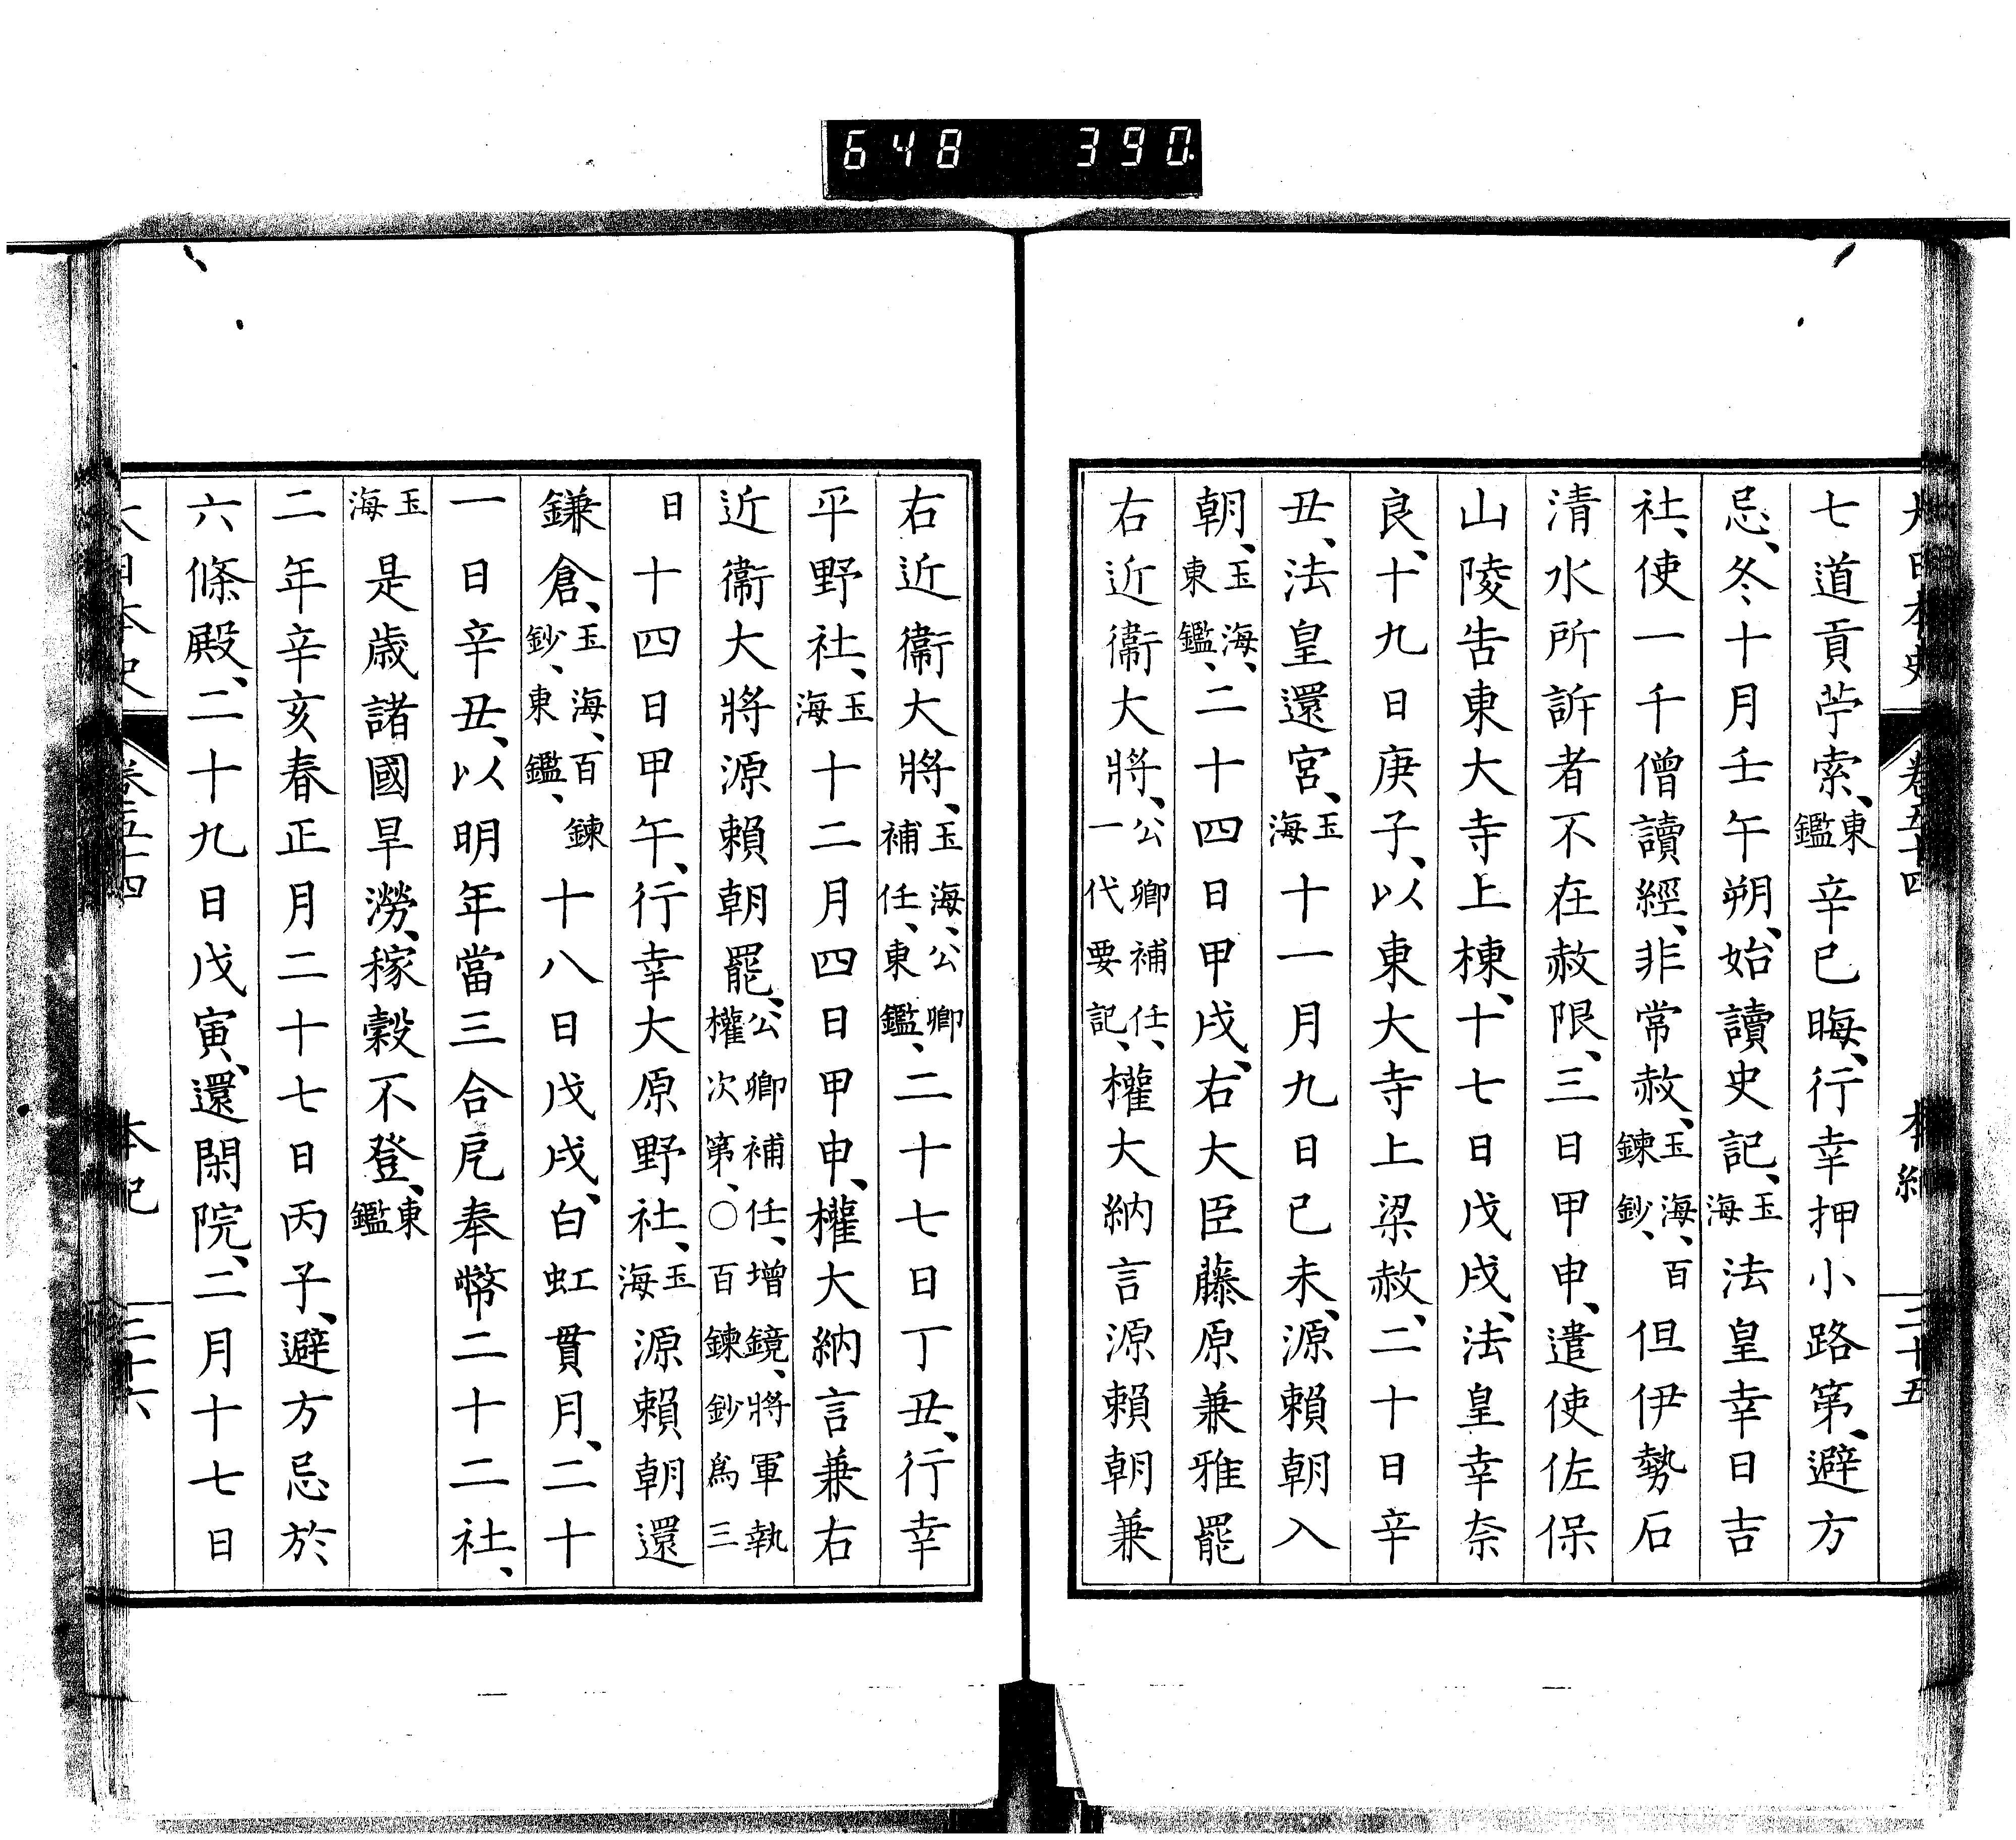 648 390
大日本史 卷五十四 本紀 二十五
七道貢苧索、東鑑辛巳晦、行幸押小路第、避方
忌、冬十月壬午朔、始讀史記、玉海法皇幸日吉
社、使一千僧讀經、非常赦、玉海、百鍊鈔、但伊勢石
清水所訴者不在赦限、三日甲申、遣使佐保
山陵告東大寺上棟、十七日戊戌、法皇幸奈
良、十九日庚子、以東大寺上梁赦、二十日辛
丑、法皇還宮、玉海十一月九日己未、源賴朝入
朝、玉海、東鑑、二十四日甲戌、右大臣藤原兼雅罷
右近衞大將、公卿補任、一代要記、權大納言源賴朝兼
右近衞大將、玉海、公卿補任、東鑑、二十七日丁丑、行幸
平野社、玉海十二月四日甲申、權大納言兼右
近衞大將源賴朝罷、公卿補任、增鏡、將軍執權次第、○百鍊鈔爲三
日十四日甲午、行幸大原野社、玉海源賴朝還
鎌倉、玉海、百鍊鈔、東鑑、十八日戊戌、白虹貫月、二十
一日辛丑、以明年當三合戹奉幣二十二社、
玉海是歳諸國旱澇、稼穀不登、東鑑
二年辛亥春正月二十七日丙子、避方忌於
六條殿、二十九日戊寅、還閑院、二月十七日
大日本史 卷五十四 本紀 二十六